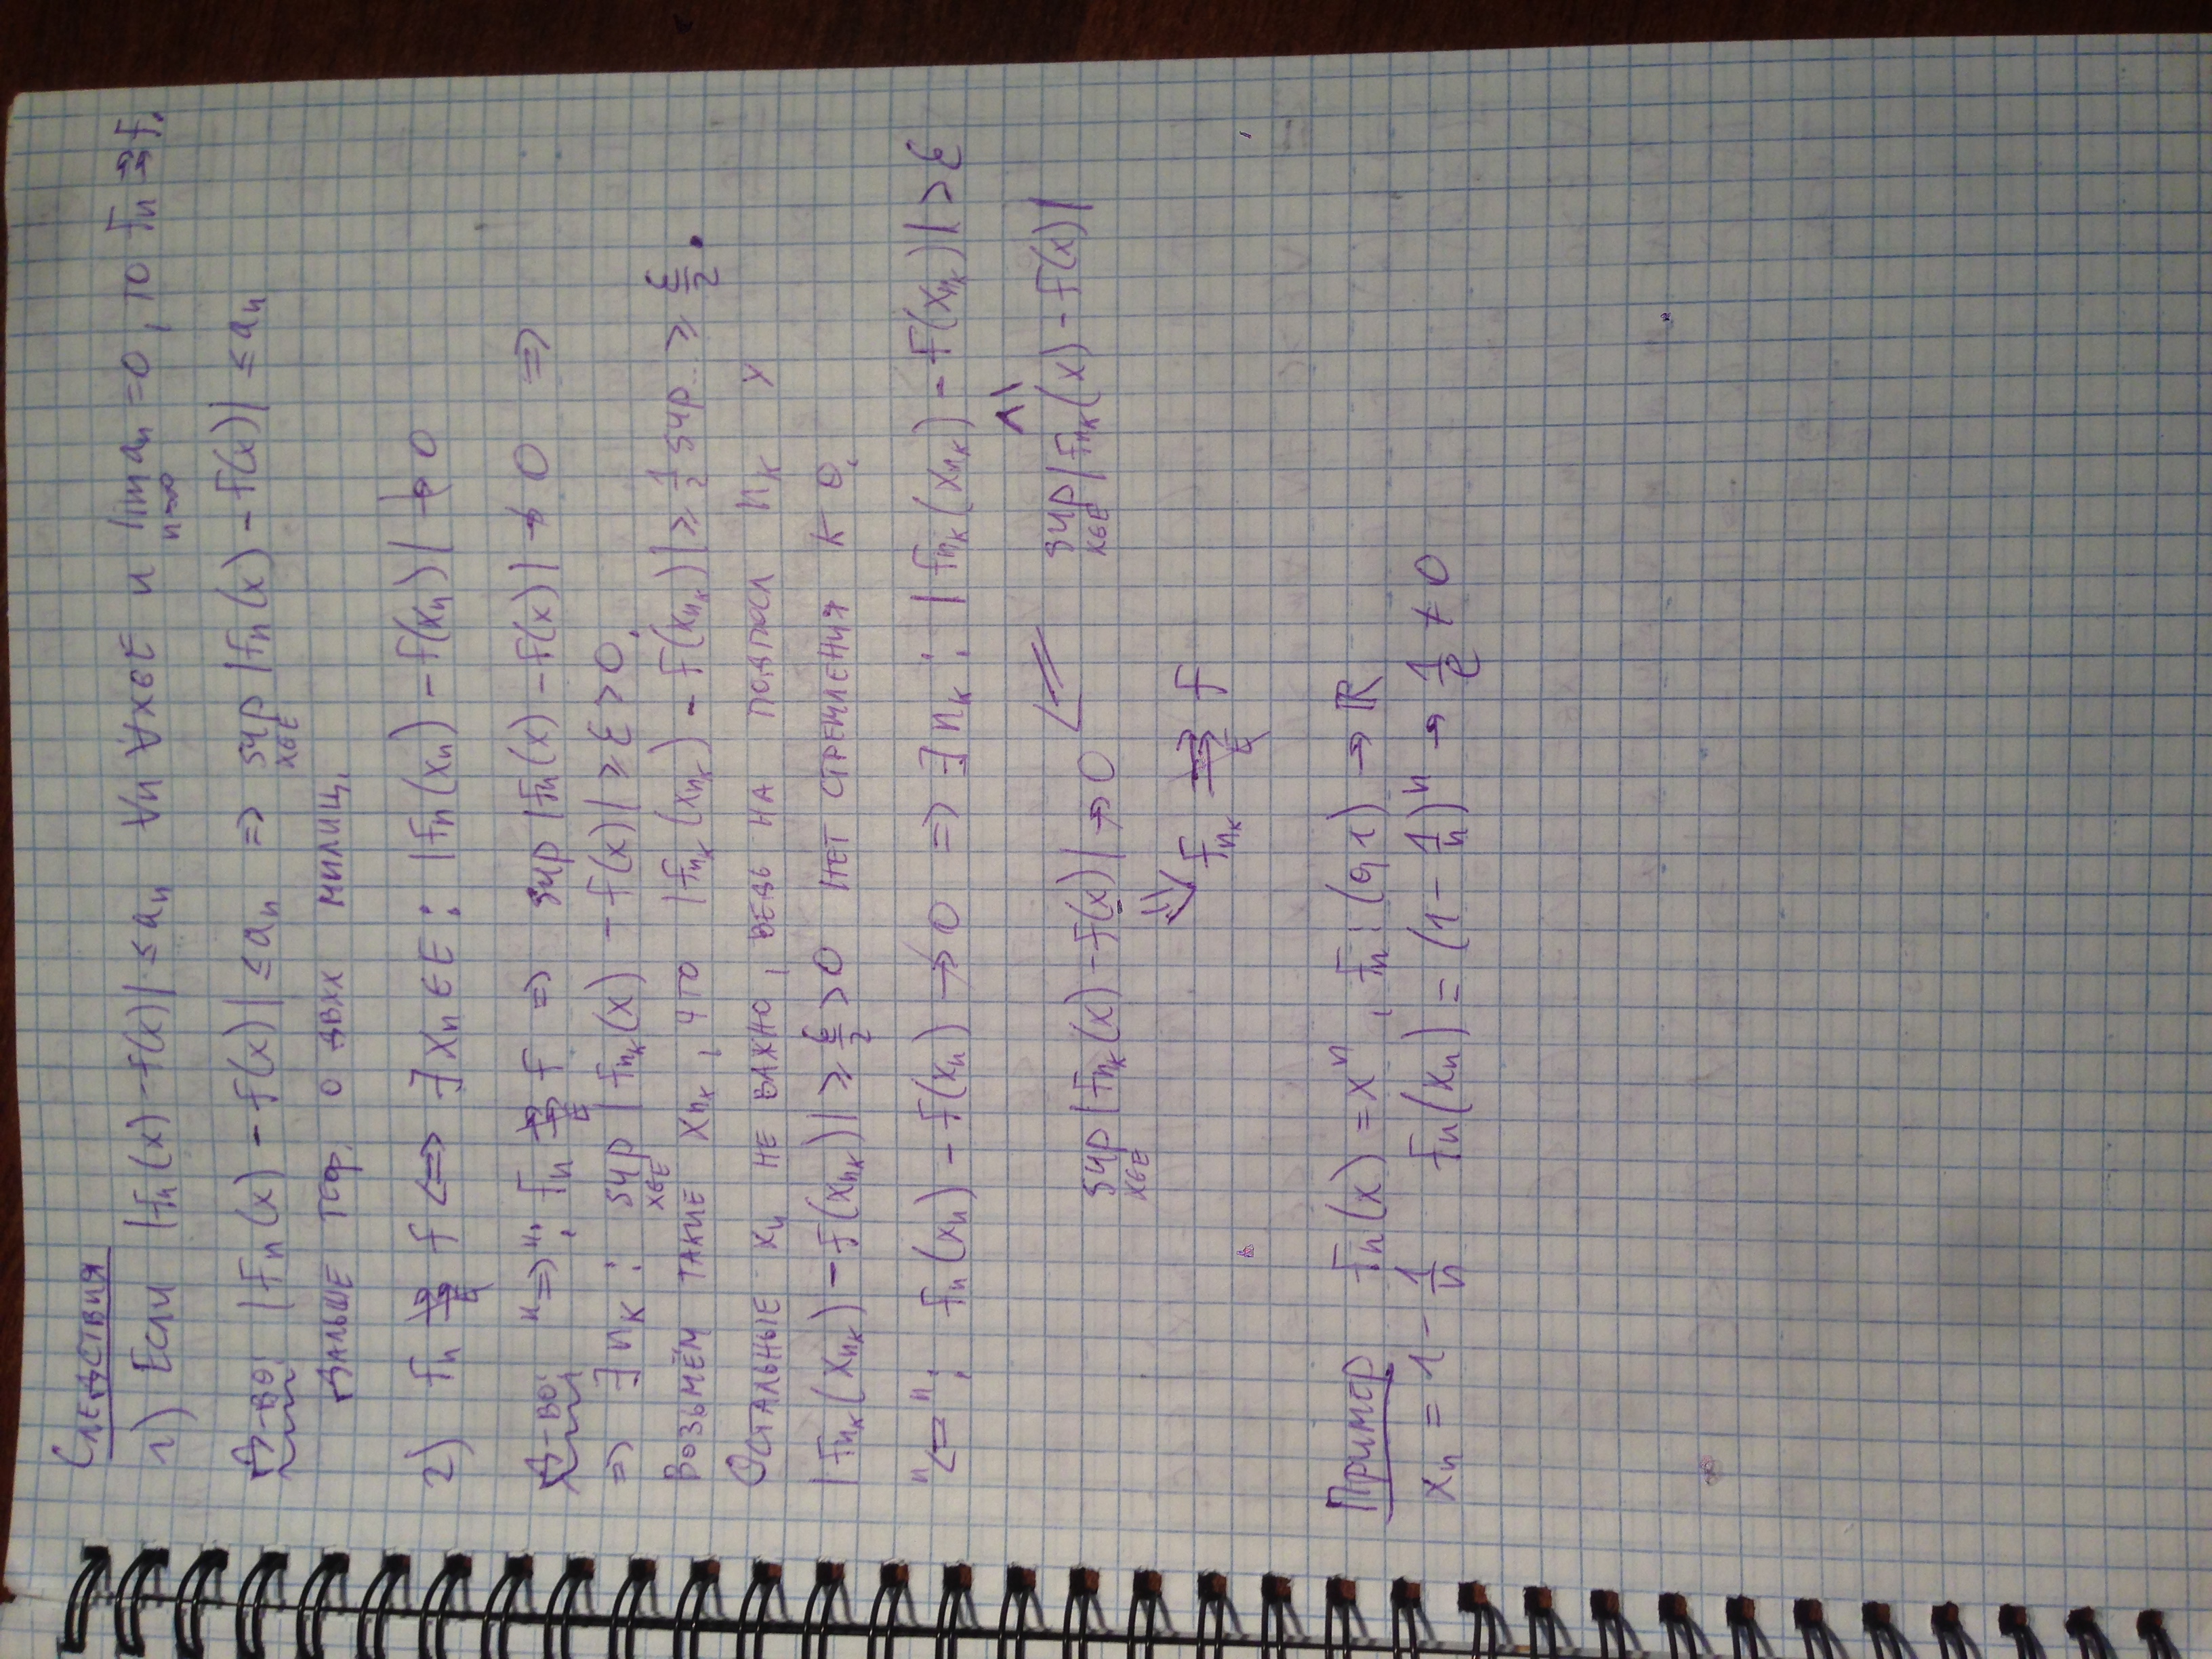 Следствия
1) Если |fₙ(x) - f(x)| ≤ aₙ ∀n ∀x∈E и lim_{n→∞} aₙ = 0, то fₙ ⇉ f.
Д-во: |fₙ(x) - f(x)| ≤ aₙ ⇒ sup_{x∈E} |fₙ(x) - f(x)| ≤ aₙ
Дальше теор. о двух милиц.
2) fₙ ⇉̸_E f <=> ∃ xₙ ∈ E : |fₙ(xₙ) - f(xₙ)| ↛ 0
Д-во: "⇒": fₙ ⇉̸_E f ⇒ sup |fₙ(x) - f(x)| ↛ 0 ⇒
⇒ ∃ n_k : sup_{x∈E} |f_{n_k}(x) - f(x)| ≥ ε > 0.
Возьмём такие x_{n_k}, что |f_{n_k}(x_{n_k}) - f(x_{n_k})| ≥ 1/2 sup... ≥ ε/2.
Остальные xₙ не важно, ведь на подпосл n_k у
|f_{n_k}(x_{n_k}) - f(x_{n_k})| ≥ ε/2 > 0 нет стремления к 0.
"<=": fₙ(xₙ) - f(xₙ) ↛ 0 ⇒ ∃ n_k : |f_{n_k}(x_{n_k}) - f(x_{n_k})| > ε
∧|
sup_{x∈E} |f_{n_k}(x) - f(x)| ↛ 0 ⇐ sup_{x∈E} |f_{n_k}(x) - f(x)|
⇓ f_{n_k} ⇉̸_E f
Пример fₙ(x) = xⁿ, fₙ : (0,1) → ℝ
xₙ = 1 - 1/n fₙ(xₙ) = (1 - 1/n)ⁿ → 1/e ≠ 0